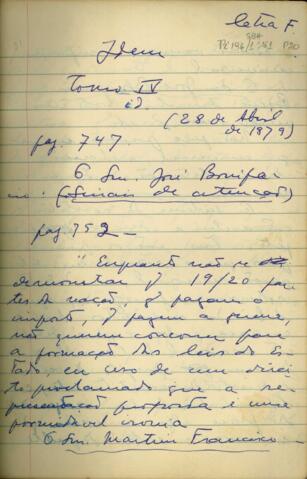 letra F.
P20
Idem
Tomo IV
id
(28 de Abril
de 1879)
pag. 747.
O Snr. José Bonifa-
cio: (Sinais de attenção)
pag. 752 —
"Emquanto não se
demonstrar q 19/20 par-
tes da nação, q pagam o
imposto, q pagam a guerra,
não querem concorrer para
a formação das leis do Es-
tado em uso de um direi-
to proclamado que a re-
presentação proposta é uma
formidavel ironia
O Snr. Martim Francisco —